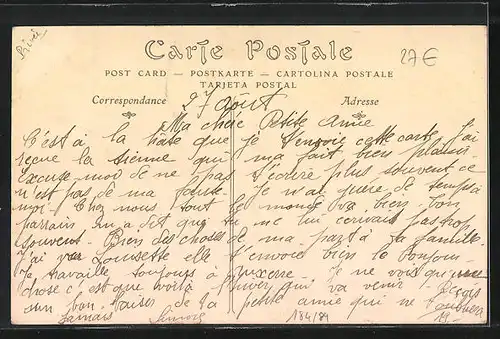 Privée
27€
Carte Postale
POST CARD — POSTKARTE — CARTOLINA POSTALE
TARJETA POSTAL
Correspondance
Adresse
27 août
Ma chère Petite Amie
C'est à la hâte que je t'envoie cette carte. J'ai
reçue la tienne qui m'a fait bien plaisir.
Excuse moi de ne pas t'écrire plus souvent ce
n'est pas de ma faute. Je n'ai guère de temps à
moi. Chez nous tout le monde va bien. bon
parrain m'a dit que tu ne lui écrivais pas trop
souvent. Bien des choses de ma part à ta famille.
J'ai vu Lousette elle t'envoie bien le bonjour.
Je travaille toujours à Auxerre. Je ne vois qu'une
chose c'est que voilà l'hiver qui va venir. Reçois
un bon baiser de ta petite amie qui ne t'oubliera
Jamais
184/84